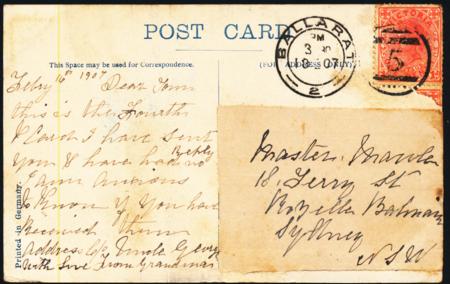 POST CARD
This Space may be used for Correspondence.
(FOR ADDRESS ONLY.)
BALLARAT
PM
07
2
VICTORIA
5
Feby 16th 1907
Dear Tom
this is the Fourth
P Card I have sent
you & have had no
Reply
I am anxious
to Know if you have
Received them
address c/o Uncle George
with Love From Grandma
Printed in Germany.
Master
18, Terry St
Rozelle Balmain
Sydney
N.S.W